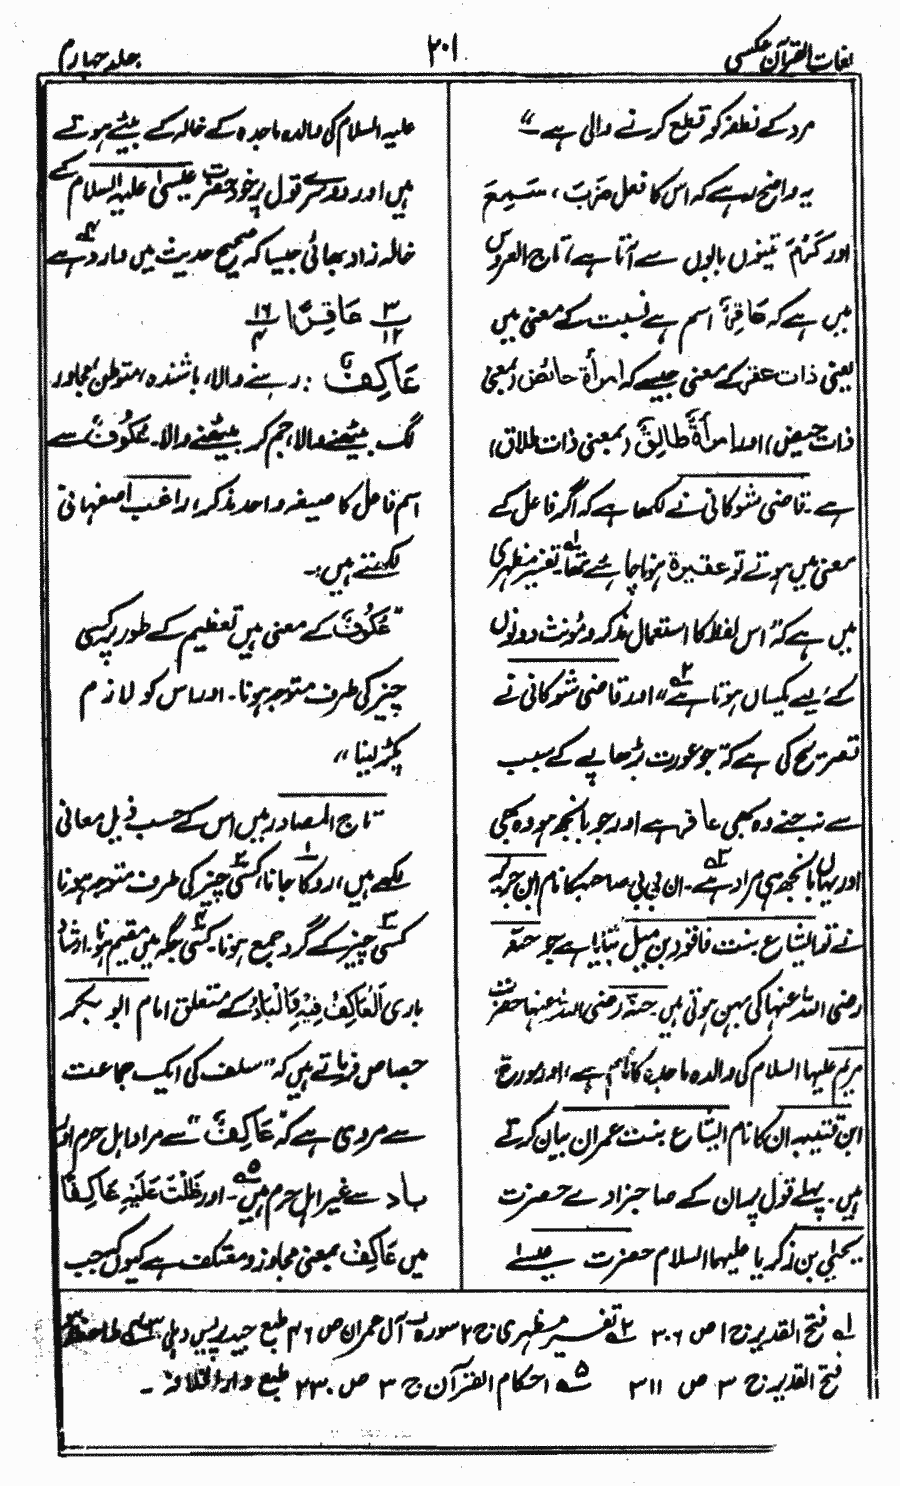 لغات القرآن عکسی
۲۰۱
جلد چہارم
مرد کے نطفہ کو قطع کرنے والی ہے"
یہ واضح رہے کہ اس کا فعل ضَرَبَ، سَمِعَ
اور کَرُمَ تینوں بابوں سے آتا ہے، تاج العروس
میں ہے کہ عَاقِرٌ اسم ہے نسبت کے معنی میں
یعنی ذات عقر کے معنی جیسے کہ امرأة حائض (بمعنی
ذات حیض) اور امرأةٌ طالِقٌ (بمعنی ذات طلاق)
ہے۔ قاضی شوکانی نے لکھا ہے کہ اگر فاعل کے
معنی میں ہوتے تو عقیرة ہونا چاہئے تھا۔ تفسیر مظہری
میں ہے کہ "اس لفظ کا استعمال مذکر و مؤنث دونوں
کے لیے یکساں ہوتا ہے" اور قاضی شوکانی نے
تصریح کی ہے کہ جو عورت بڑھاپے کے سبب
سے نہ جنے وہ بھی عاقر ہے اور جو بانجھ ہو وہ بھی
اور یہاں بانجھ ہی مراد ہے۔ ان بی بی صاحبہ کا نام ابن جریر
نے تو الشاع بنت فاقود بن میل بتایا ہے جو حنہ
رضی اللہ عنہا کی بہن ہوتی ہیں۔ حنہ رضی اللہ عنہا حضرت
مریم علیہا السلام کی والدہ ماجدہ کا نام ہے، اور مورخ
ابن قتیبہ ان کا نام الشاع بنت عمران بیان کرتے
ہیں۔ پہلے قول پر ان کے صاحبزادے حضرت
یحییٰ بن زکریا علیہما السلام حضرت عیسیٰ
علیہ السلام کی والدہ ماجدہ کے خالہ کے بیٹے ہوتے
ہیں اور دوسرے قول پر خود حضرت عیسیٰ علیہ السلام کے
خالہ زاد بھائی جیسا کہ صحیح حدیث میں وارد ہے
عَاقِرًا ۳/۱۲ ۱۶/۴
عَاکِفٌ: رہنے والا، باشندہ، متوطن، مجاور
لگ بیٹھنے والا، جم کر بیٹھنے والا۔ عُکُوْفٌ سے
اسم فاعل کا صیغہ واحد مذکر، راغب اصفہانی
لکھتے ہیں:۔
"عُکُوْفٌ کے معنی ہیں تعظیم کے طور پر کسی
چیز کی طرف متوجہ ہونا۔ اور اس کو لازم
پکڑ لینا"
تاج المصادر میں اس کے حسب ذیل معانی
لکھے ہیں، روکا جانا، کسی چیز کی طرف متوجہ ہونا
کسی چیز کے گرد جمع ہونا۔ کسی جگہ میں مقیم ہونا۔ ارشاد
باری اَلْعَاکِفُ فِیْہِ وَالْبَادُ کے متعلق امام ابو بکر
جصاص فرماتے ہیں کہ "سلف کی ایک جماعت
سے مروی ہے کہ "عَاکِفٌ" سے مراد اہل حرم اور
باد سے غیر اہل حرم ہیں۔ اور ظَلْتَ عَلَیْہِ عَاکِفًا
میں عَاکِفْ بمعنی مجاور و معتکف ہے کیوں کہ جب
۱؎ فتح القدیر ج ۱ ص ۳۰۶ ۲؎ تفسیر مظہری ج ۲ سورہ آل عمران ص ۴۶ طبع جید پریس دہلی ۳؎ ملاحظہ ہو
فتح القدیر ج ۳ ص ۳۱۱ ۵؎ احکام القرآن ج ۳ ص ۲۳۰ طبع